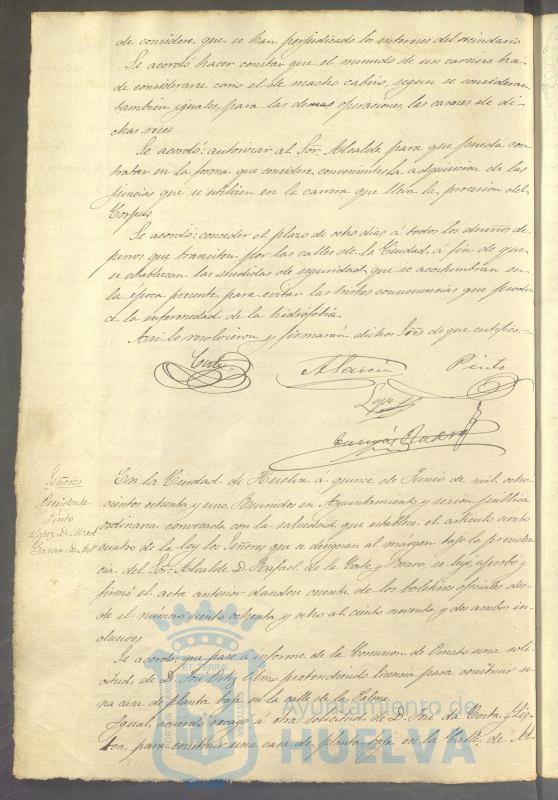 de considere que se han perjudicado los intereses del vecindario
Se acordó hacer constar que el menudo de un carnero ha
de considerarse como el de macho cabrio, segun se consideran
tambien iguales, para las demas operaciones, las carnes de di-
chas reses
Se acordó: autorizar al Sor. Alcalde para que pueda con
tratar en la forma que considere conveniente la adquisicion de las
juncias que se utilicen en la carrera que lleva la procesion del
Corpus
Se acordó: conceder el plazo de ocho dias á todos los dueños de
perros que transiten por las calles de la Ciudad á fin de que
se establezcan las medidas de seguridad que se acostumbran en
la época presente para evitar las tristes consecuencias que produ-
ce la enfermedad de la hidrofobia.
Asi lo resolvieron y firmarán dichos Sres de que certifico.
Garcia Pinto
Lopez
Señores
Presidente
Pinto
Lopez D. Man.l
Garcia D. Ant.º
En la Ciudad de Huelva á quince de Junio de mil ocho
cientos ochenta y uno Reunidos en Ayuntamiento y sesion publica
ordinaria convocada con la salvedad que establece el articulo ciento
cuatro de la ley los Señores que se designan al margen bajo la presiden
cia del Sor. Alcalde D. Rafael de la Corte y Bravo, se leyó, aprobó y
firmó el acta anterior dandose cuenta de los boletines oficiales des-
de el número ciento ochenta y ocho al ciento noventa y dos ambos in-
clusives
Se acordó que pase á informe de la Comision de Ornato una soli-
citud de D. José Olmo pretendiendo licencia para construir u-
na casa de planta baja en la calle de la Palma
Igual acuerdo recayó á otra solicitud de D. José da Costa y
para construir una casa de planta baja en la Calle de
Ayuntamiento de
HUELVA